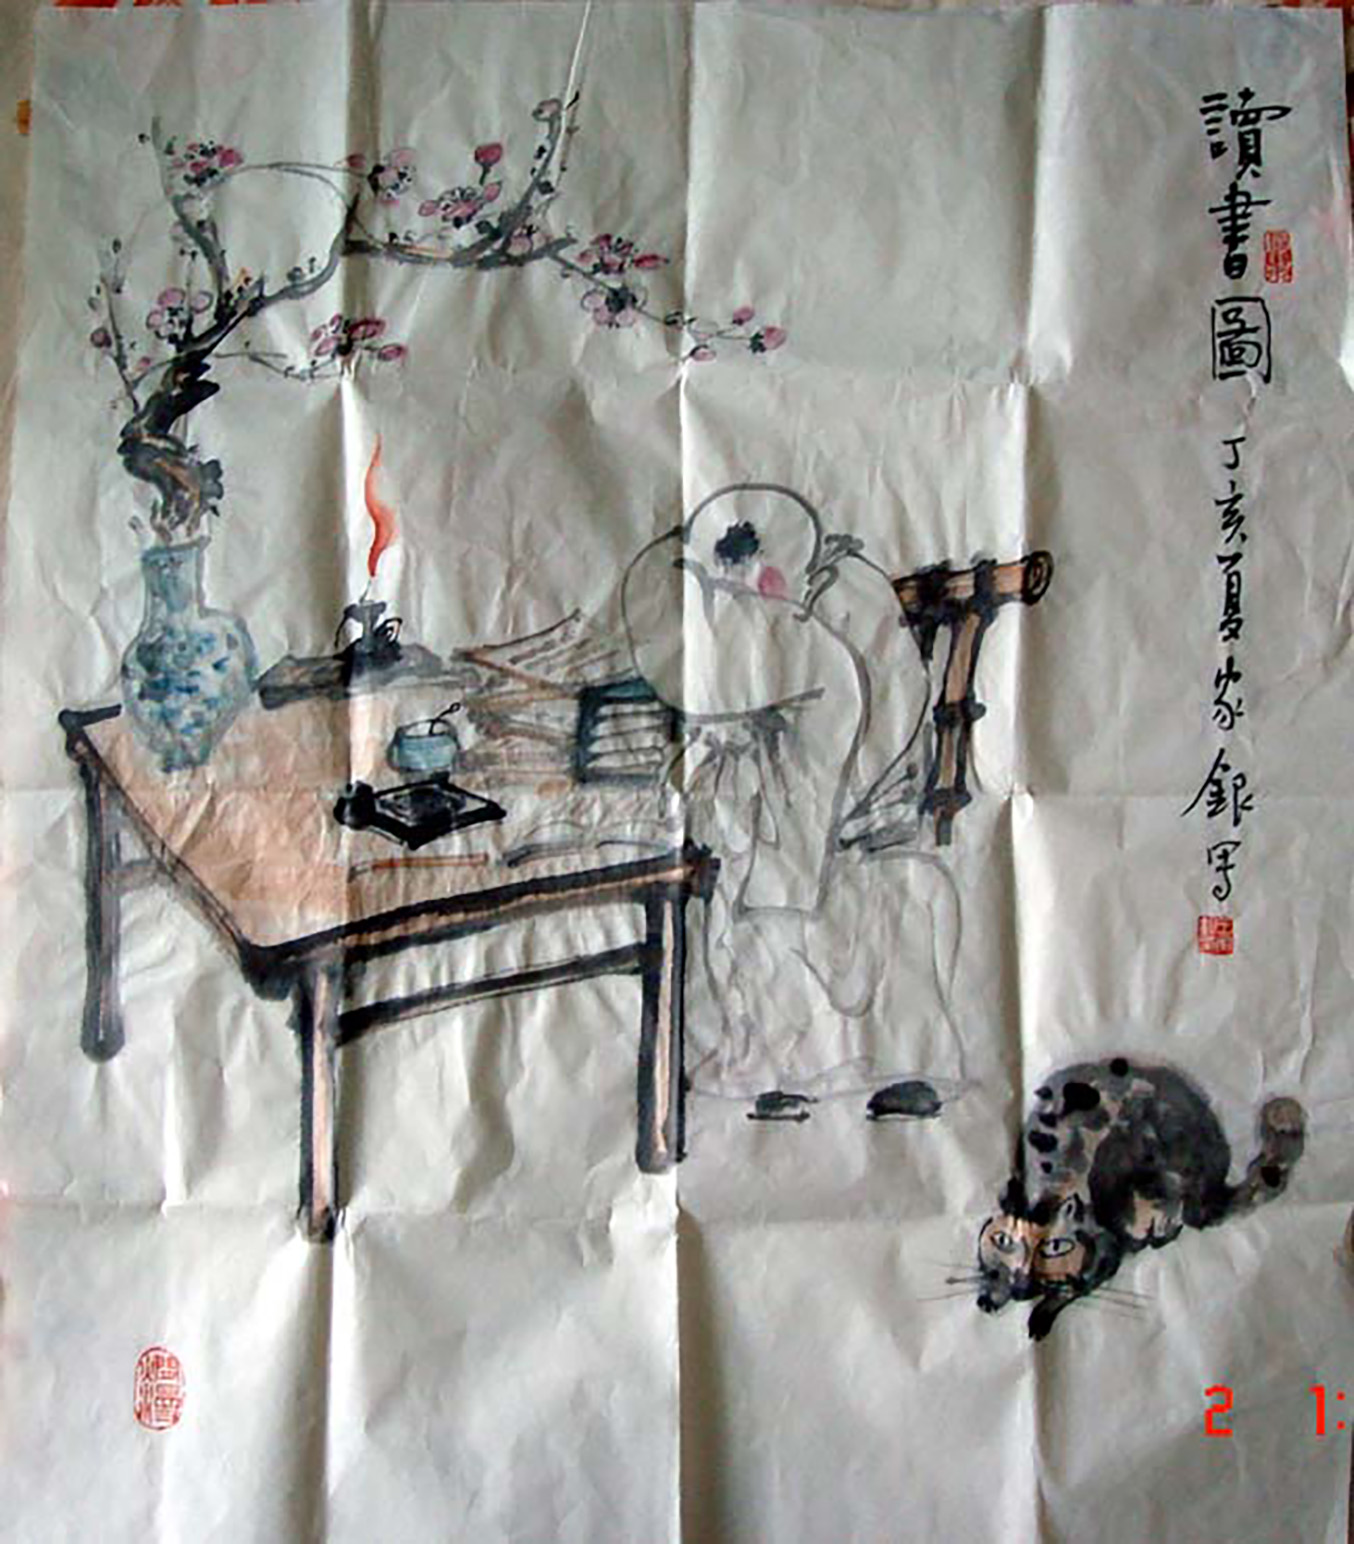 讀書圖
丁亥夏家銀写
2 1: